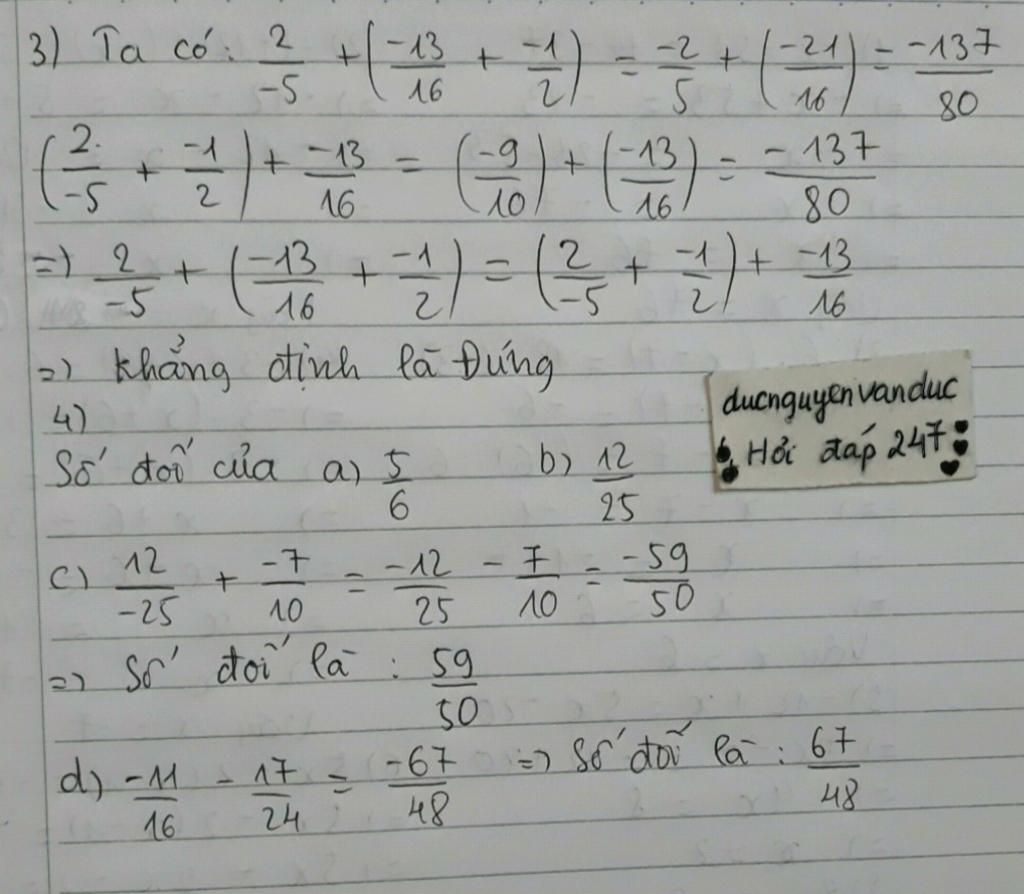 3) Ta có: 2/-5 + (-13/16 + -1/2) = -2/5 + (-21/16) = -137/80
(2/-5 + -1/2) + -13/16 = (-9/10) + (-13/16) = -137/80
=) 2/-5 + (-13/16 + -1/2) = (2/-5 + -1/2) + -13/16
=) Khẳng định là Đúng
4)
Số đối của a) 5/6 b) 12/25
ducnguyenvanduc
Hỏi đáp 247
c) 12/-25 + -7/10 = -12/25 - 7/10 = -59/50
=) Số đối là : 59/50
d) -11/16 - 17/24 = -67/48 =) Số đối là : 67/48